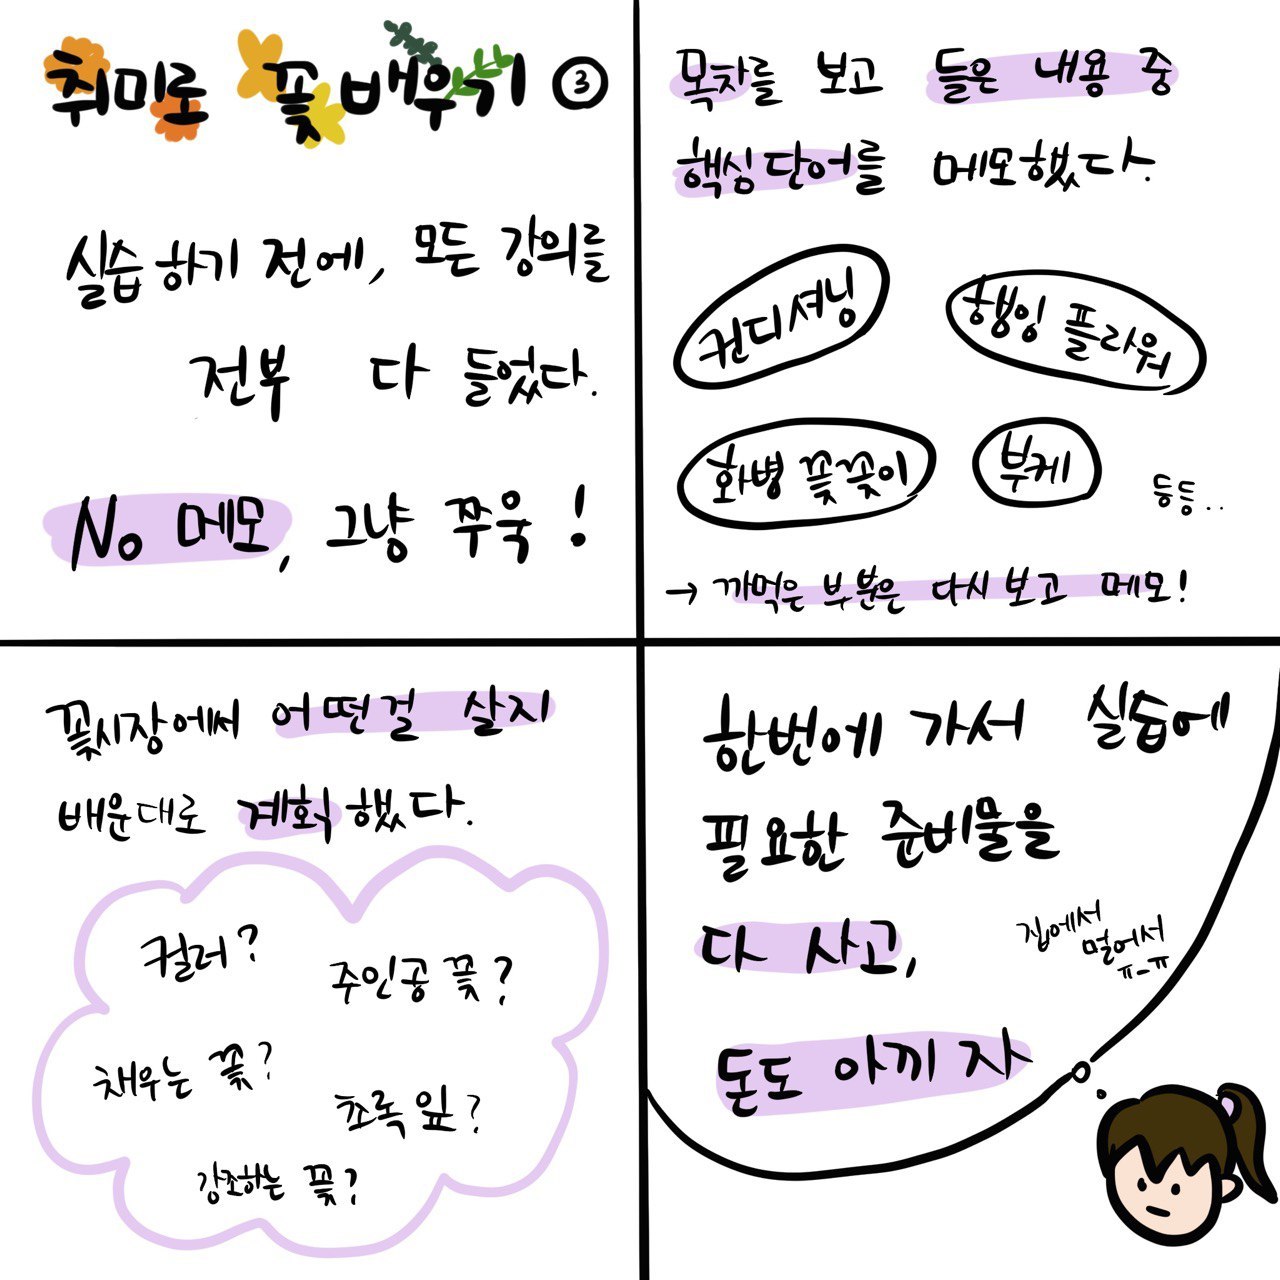 취미로 꽃 배우기 ③
실습하기 전에, 모든 강의를
전부 다 들었다.
No 메모, 그냥 쭈욱!
목차를 보고 들은 내용 중
핵심단어를 메모했다.
컨디셔닝
행잉 플라워
화병 꽃꽂이
부케
등등..
→ 까먹은 부분은 다시 보고 메모!
꽃시장에서 어떤걸 살지
배운대로 계획했다.
컬러?
주인공 꽃?
채우는 꽃?
초록 잎?
강조하는 꽃?
한번에 가서 실습에
필요한 준비물을
다 사고,
집에서
멀어서
ㅠ-ㅠ
돈도 아끼자